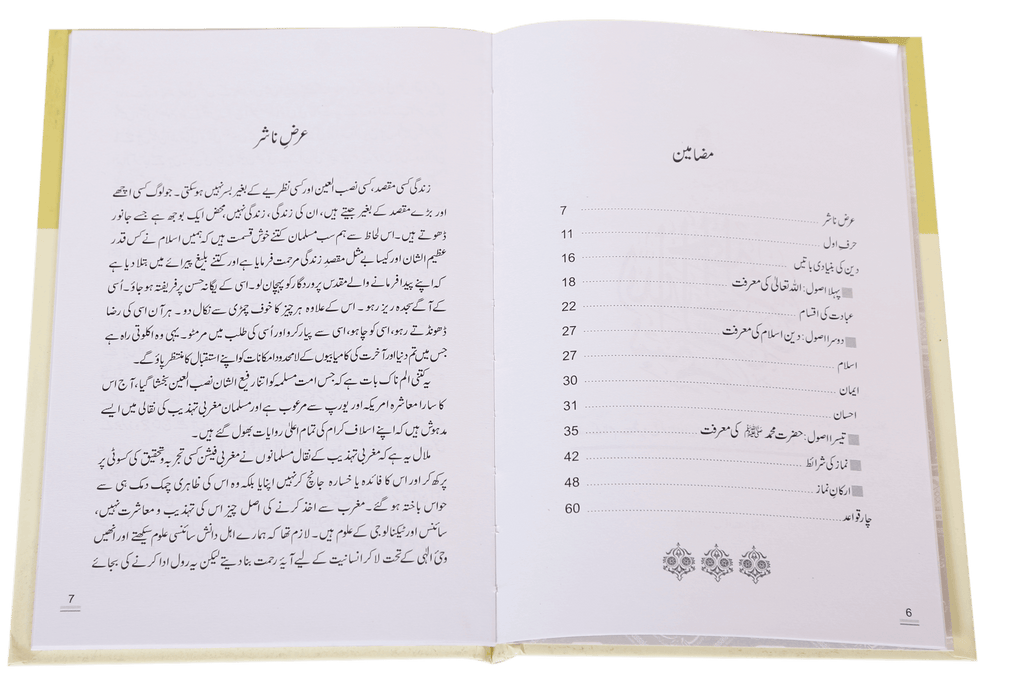 مضامین
عرض ناشر 7
حرف اول 11
دین کی بنیادی باتیں 16
پہلا اصول: اللہ تعالیٰ کی معرفت 18
عبادت کی اقسام 22
دوسرا اصول: دین اسلام کی معرفت 27
اسلام 27
ایمان 30
احسان 31
تیسرا اصول: حضرت محمد ﷺ کی معرفت 35
نماز کی شرائط 42
ارکان نماز 48
چار قواعد 60
6
عرضِ ناشر
زندگی کسی مقصد، کسی نصب العین اور کسی نظریے کے بغیر بسر نہیں ہوسکتی۔ جو لوگ کسی اچھے
اور بڑے مقصد کے بغیر جیتے ہیں، ان کی زندگی، زندگی نہیں، محض ایک بوجھ ہے جسے جانور
ڈھوتے ہیں۔ اس لحاظ سے ہم سب مسلمان کتنے خوش قسمت ہیں کہ ہمیں اسلام نے کس قدر
عظیم الشان اور کیسا بے مثل مقصدِ زندگی مرحمت فرمایا ہے اور کتنے بلیغ پیرائے میں بتلا دیا ہے
کہ اپنے پیدا فرمانے والے مقدس پروردگار کو پہچان لو۔ اسی کے یگانہ حسن پر فریفتہ ہو جاؤ۔ اُسی
کے آگے سجدہ ریز رہو۔ اس کے علاوہ ہر چیز کا خوف چمڑی سے نکال دو۔ ہر آن اسی کی رضا
ڈھونڈتے رہو، اسی کو چاہو، اسی سے پیار کرو اور اُسی کی طلب میں مرمٹو۔ یہی وہ اکلوتی راہ ہے
جس میں تم دنیا اور آخرت کی کامیابیوں کے لامحدود امکانات کو اپنے استقبال کا منتظر پاؤ گے۔
یہ کتنی الم ناک بات ہے کہ جس امت مسلمہ کو اتنا رفیع الشان نصب العین بخشا گیا، آج اس
کا سارا معاشرہ امریکہ اور یورپ سے مرعوب ہے اور مسلمان مغربی تہذیب کی نقالی میں ایسے
مدہوش ہیں کہ اپنے اسلاف کرام کی تمام اعلیٰ روایات بھول گئے ہیں۔
ملال یہ ہے کہ مغربی تہذیب کے نقال مسلمانوں نے مغربی فیشن کسی تجربہ و تحقیق کی کسوٹی پر
پرکھ کر اور اس کا فائدہ یا خسارہ جانچ کر نہیں اپنایا بلکہ وہ اس کی ظاہری چمک دمک ہی سے
حواس باختہ ہو گئے۔ مغرب سے اخذ کرنے کی اصل چیز اس کی تہذیب و معاشرت نہیں،
سائنس اور ٹیکنالوجی کے علوم ہیں۔ لازم تھا کہ ہمارے اہل دانش سائنسی علوم سیکھتے اور انھیں
وحیٔ الٰہی کے تحت لا کر انسانیت کے لیے آیۂ رحمت بنا دیتے لیکن یہ رول ادا کرنے کی بجائے
7